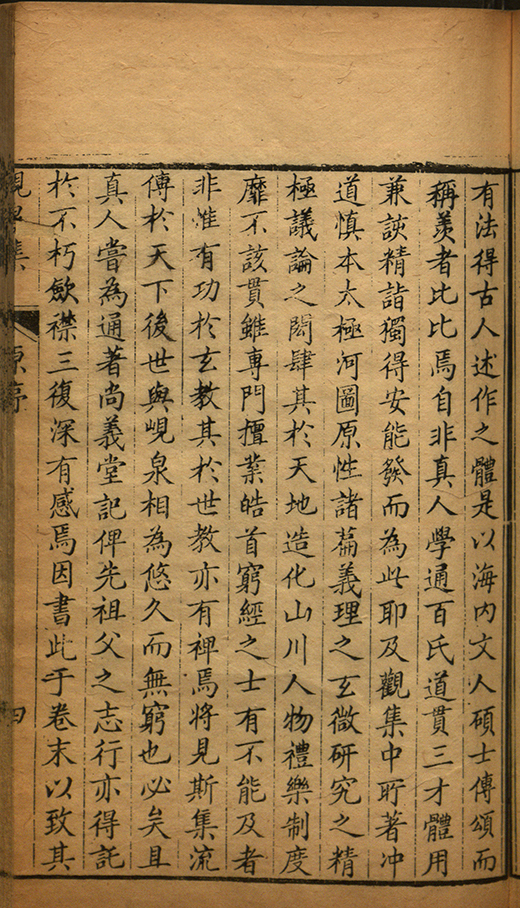 有法得古人述作之體是以海內文人碩士傳頌而
稱羨者比比焉自非真人學通百氏道貫三才體用
兼該精詣獨得安能發而為此耶及觀集中所著冲
道慎本太極河圖原性諸篇義理之玄微研究之精
極議論之閎肆其於天地造化山川人物禮樂制度
靡不該貫雖專門擅業皓首窮經之士有不能及者
非惟有功於玄教其於世教亦有裨焉將見斯集流
傳於天下後世與峴泉相為悠久而無窮也必矣且
真人嘗為通著尚義堂記俾先祖父之志行亦得託
於不朽歛襟三復深有感焉因書此于卷末以致其
峴泉集 原序 四